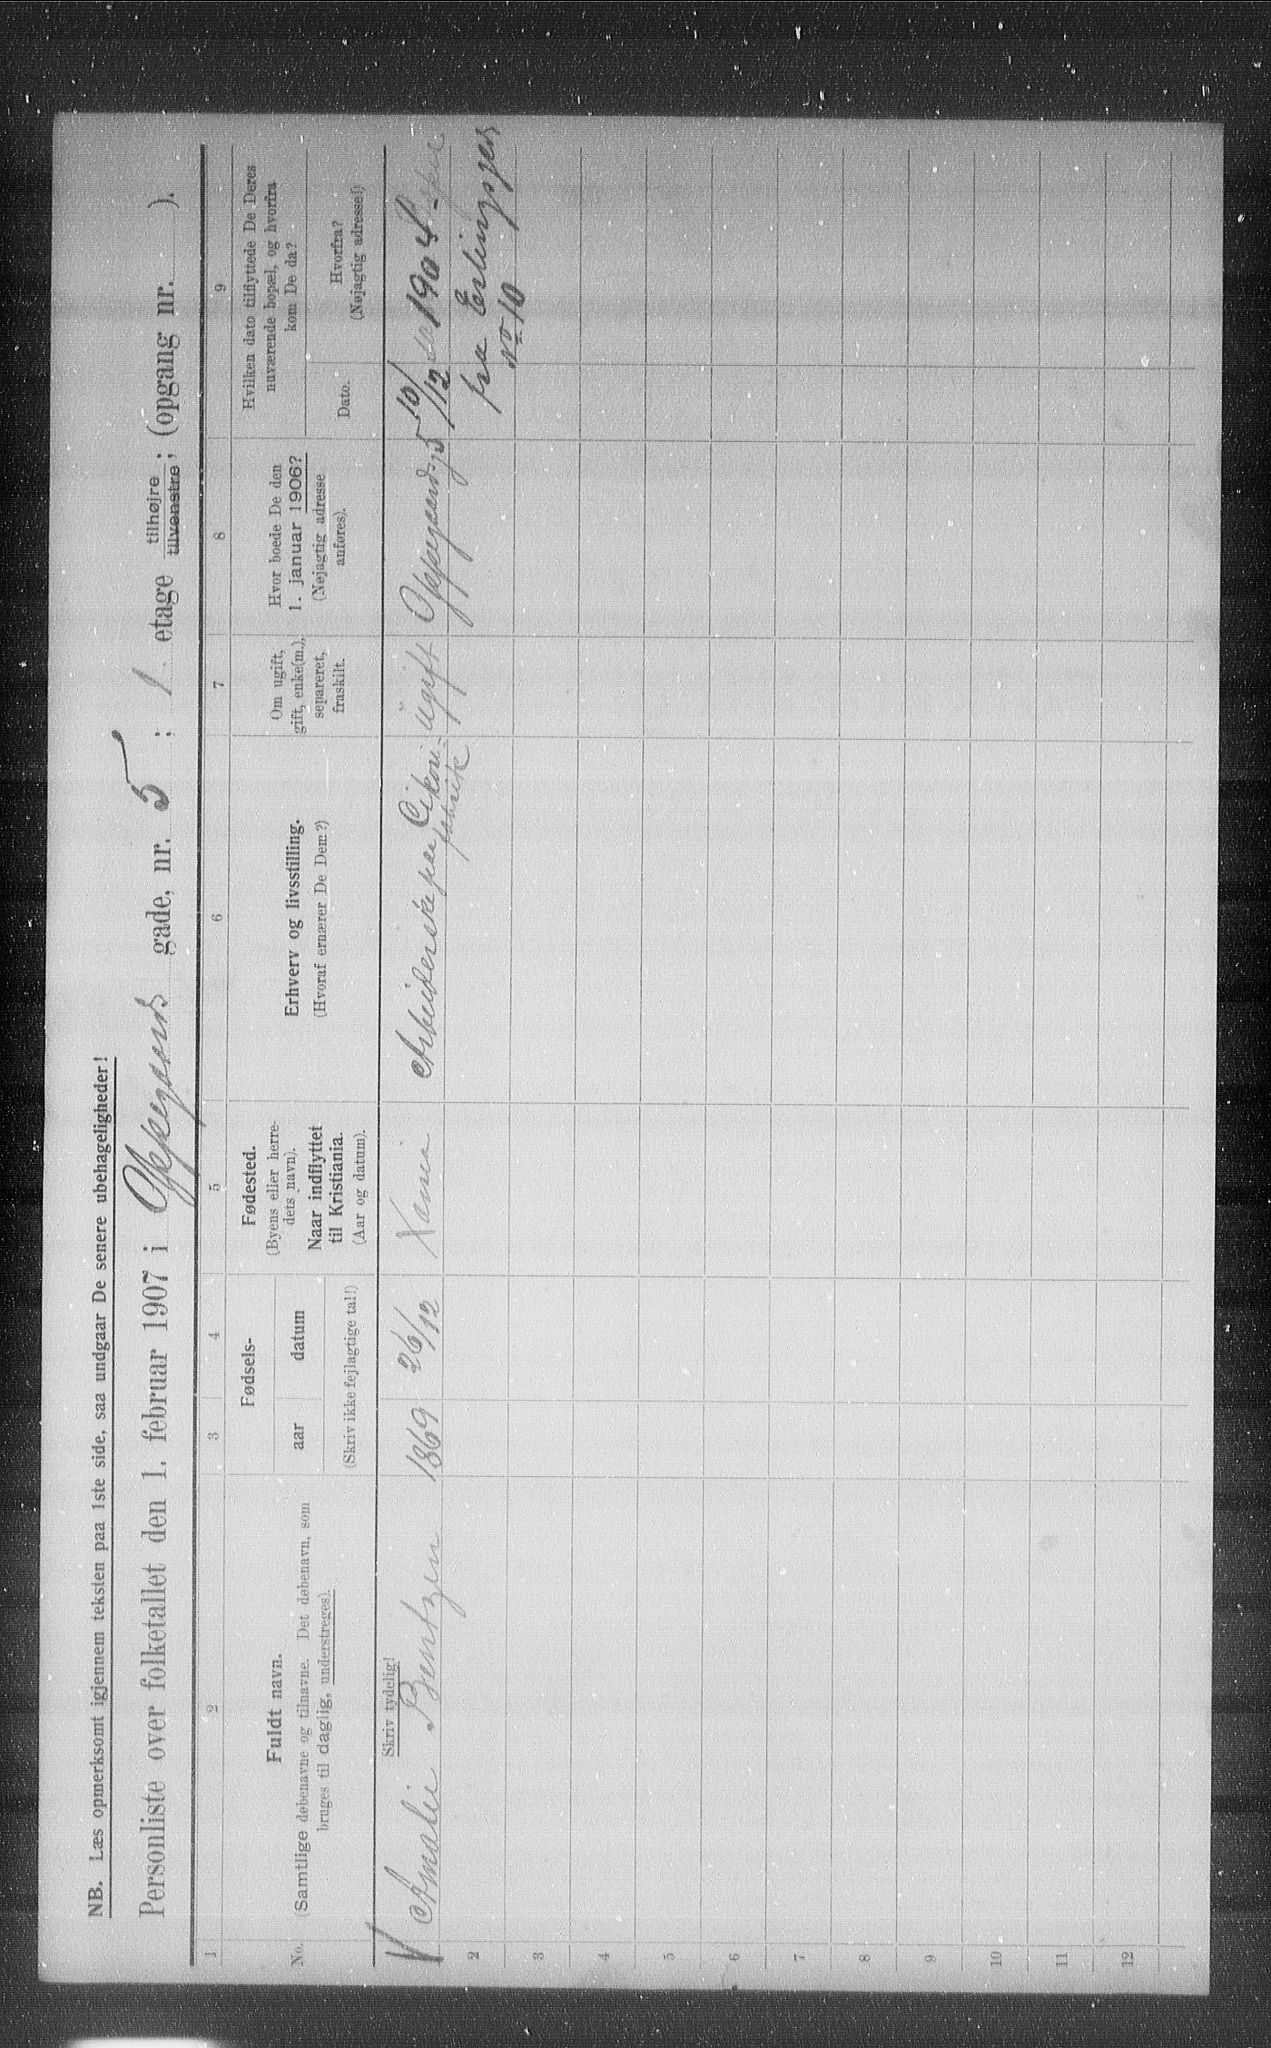 NB. Læs opmerksomt igjennem teksten paa 1ste side, saa undgaar De senere ubehageligheder!
Personliste over folketallet den 1. februar 1907 i Oppegaards gade, nr. 5; 1 etage tilhøjre tilvenstre; (opgang nr. ).
1 2 3 4 5 6 7 8 9
No.
Fuldt navn.
(Samtlige døbenavne og tilnavne. Det døbenavn, som
bruges til daglig, understreges).
Fødsels-
aar datum
(Skriv ikke fejlagtige tal!)
Fødested.
(Byens eller herre-
dets navn).
Naar indflyttet
til Kristiania.
(Aar og datum).
Erhverv og livsstilling.
(Hvoraf ernærer De Dem?)
Om ugift,
gift, enke(m.),
separeret,
fraskilt.
Hvor boede De den
1. januar 1906?
(Nøjagtig adresse
anføres).
Hvilken dato tilflyttede De Deres
nuværende bopæl, og hvorfra
kom De da?
Dato.
Hvorfra?
(Nøjagtig adresse!)
Skriv tydelig!
Amalie Bentzen 1869 26/12 Xania Arbeiderske paa Cikori- ugift Oppegaardg 5 10/12 1904
fabrik
fra Erlingsges
No 10
2
3
4
5
6
7
8
9
10
11
12